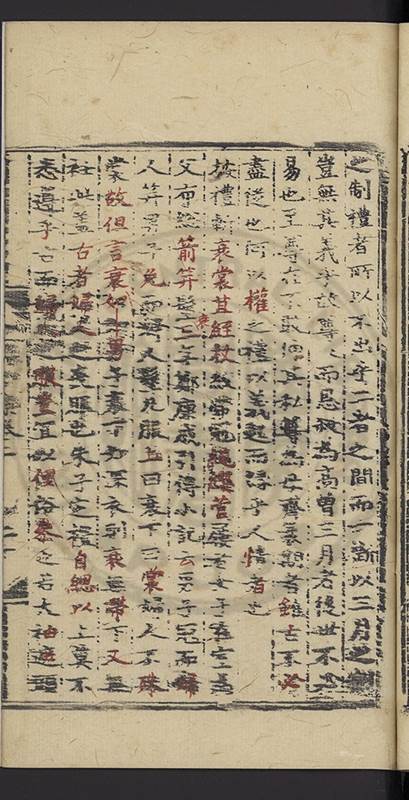 之制禮者所以不出乎二者之間而一斷以三月之制
豈無其義乎故尊尊而恩殺為高曾三月者後世不
易也至尊在不敢伸其私尊無母齊衰期者雖古不必
盡從也何以權之禮以義起而緣乎人情者也
按禮斬衰裳苴絰杖絞帶冠繩纓菅屨者女子在室為
父布總箭笄髽三年鄭康成引得小記云男子冠而婦
人笄男子免而婦人髽凡服上曰衰下曰裳婦人不殊
裳故但言衰如男子衰下如深衣則衰無帶下又無
衽此蓋古者婦人喪服也朱子之禮自總以上莫不
悉遵乎古而婦宜以俚俗參之若大袖遮頭